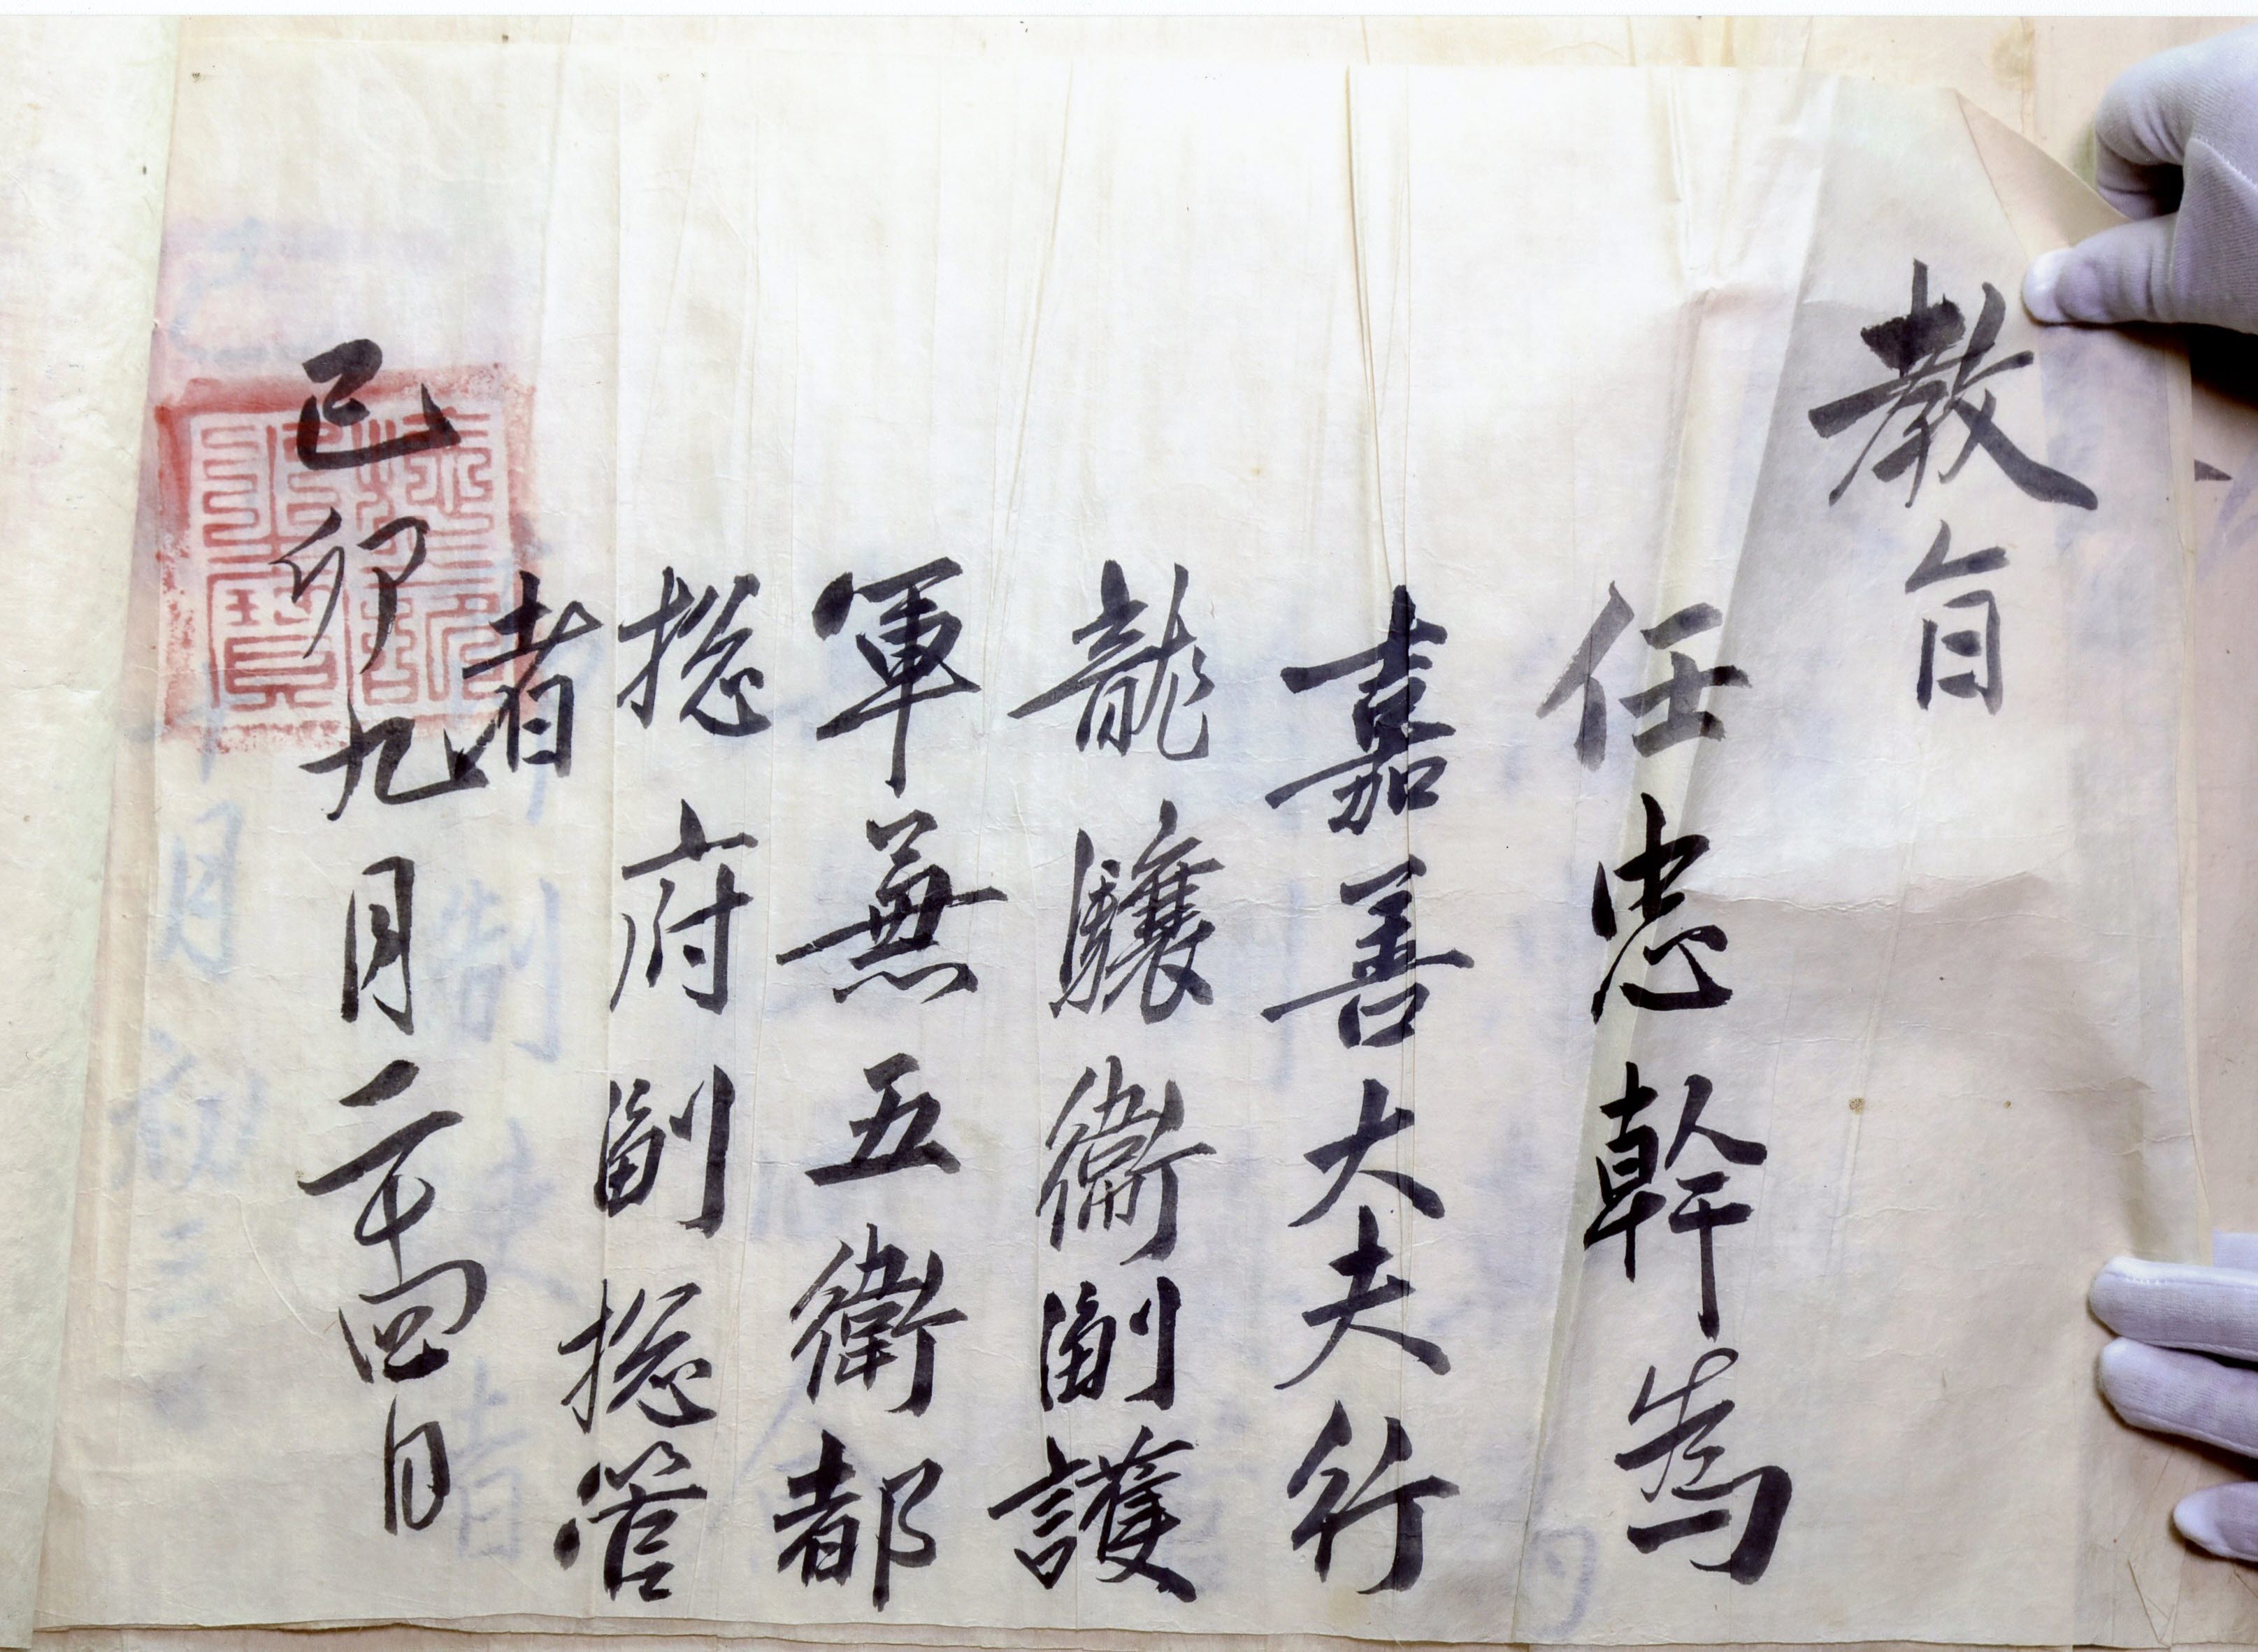 教旨
任忠幹為
嘉善大夫行
龍驤衛副護
軍兼五衛都
摠府副摠管
者
己卯九月二十四日